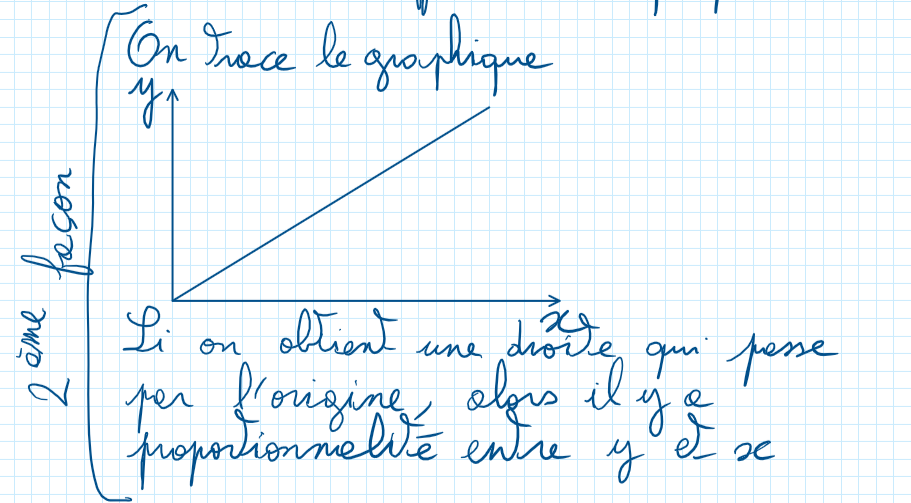 On trace le graphique
y
x
2 ème façon
Si on obtient une droite qui passe
par l'origine, alors il y a
proportionnalité entre y et x